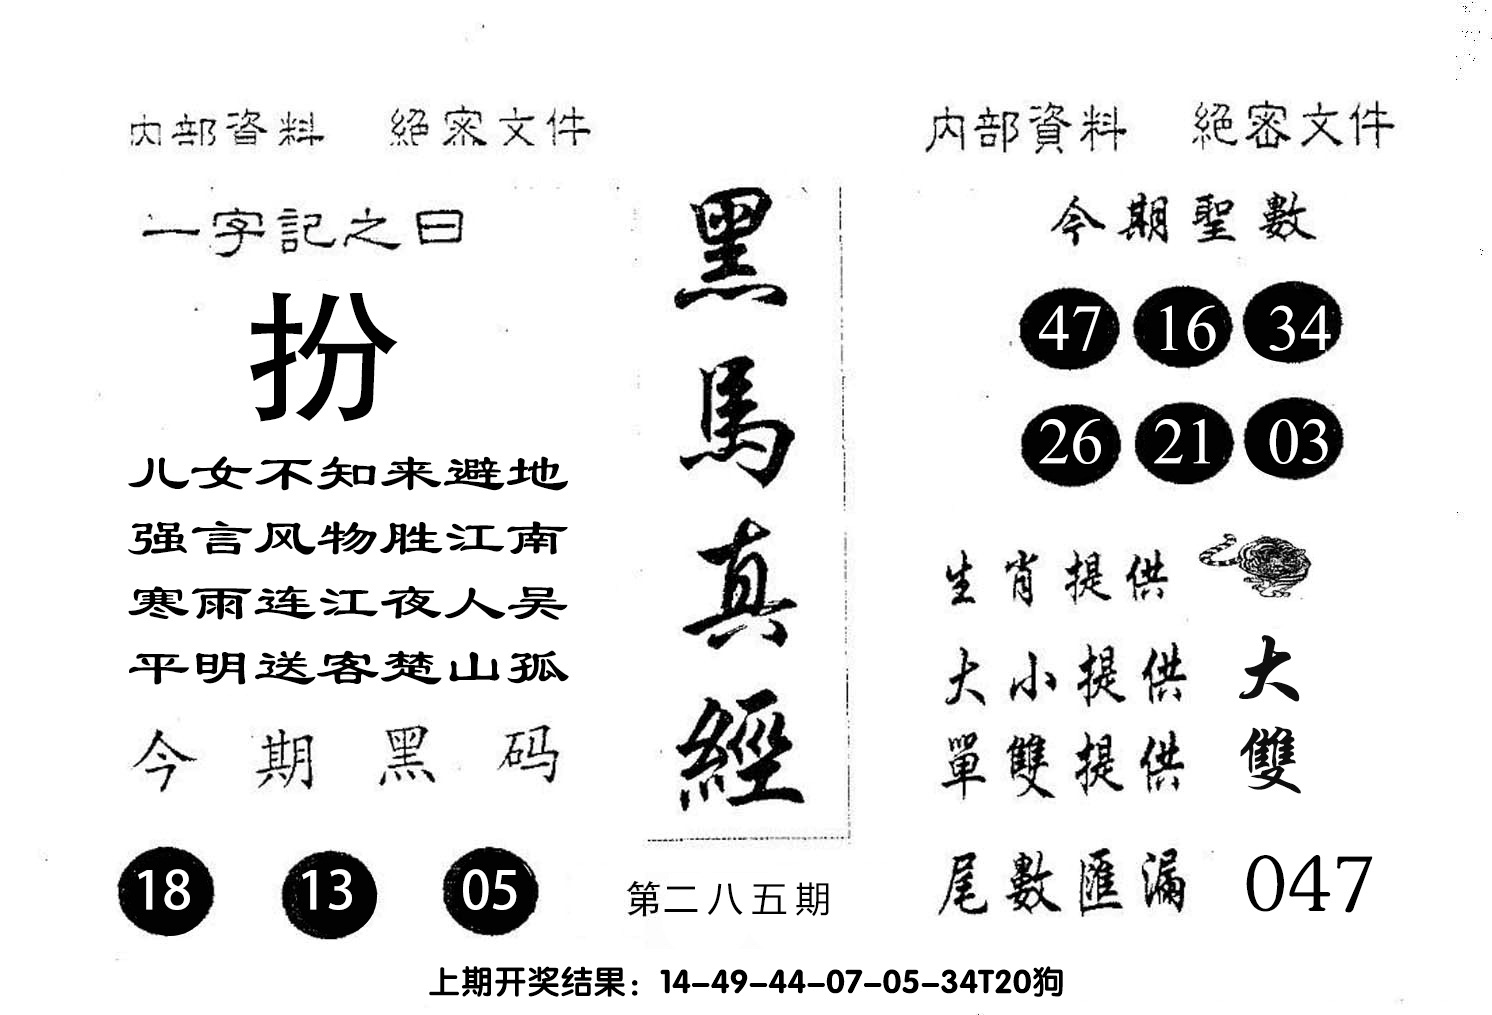 内部資料 絕密文件
一字記之曰
扮
儿女不知来避地
强言风物胜江南
寒雨连江夜人吴
平明送客楚山孤
今期黑码
18 13 05
黑馬真經
第二八五期
内部資料 絕密文件
今期聖數
47 16 34
26 21 03
生肖提供
大小提供 大
單雙提供 雙
尾數匯漏 047
上期开奖结果：14-49-44-07-05-34T20狗